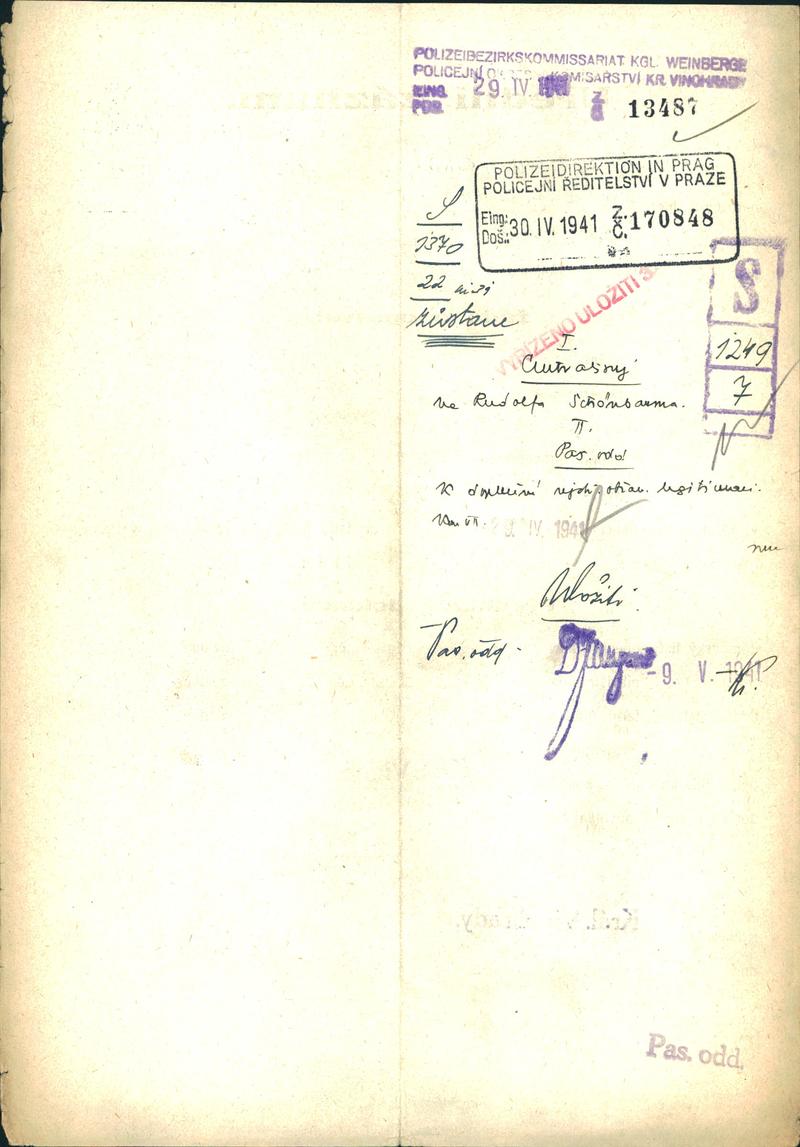 POLIZEIBEZIRKSKOMMISSARIAT KGL. WEINBERGE
POLICEJNÍ KOMISAŘSTVÍ KR. VINOHRADY
EING. 29. IV. Z
PDR. Č 13487
POLIZEIDIREKTION IN PRAG
POLICEJNÍ ŘEDITELSTVÍ V PRAZE
Eing.: 30. IV. 1941 Z.
Doš.: Č. 170848
S
1370
22
zůstane
VYŘÍZENO ULOŽITI
S
1249
7
I.
Rudolfa Schönbauma.
II.
Pas. odd
K doplnění legitimaci.
IV. 1941
Uložiti.
Pas. odd.
- 9. V. 1941
Král. Vinohrady.
Pas. odd.